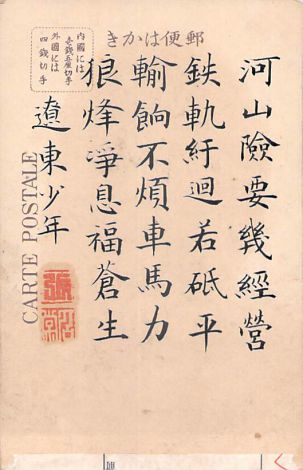 郵便はかき
内國には
壱錢五厘切手
外國には
四錢切手
河山險要幾經營
鉄軌紆迴若砥平
輸餉不煩車馬力
狼烽淨息福蒼生
遼東少年
CARTE POSTALE